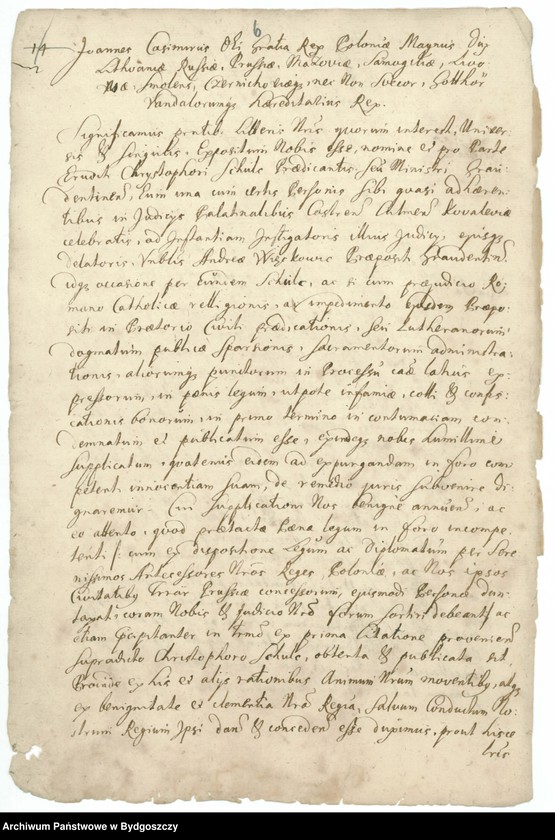 6
14
2
Joannes Casimirus Dei Gratia Rex Poloniæ Magnus Dux
Lithvaniæ Russiæ, Prussiæ, Mazoviæ, Samogitiæ, Livo
niæ, Smolens, Czernichoviæq, nec Non Svecor, Gotthor
Vandalorumq Hæreditarius Rex.
Significamus pntib Litteris Nris quorum interest, Univer
sis & Singulis. Expositum Nobis esse, nomine et pro Parte
Erudit Chrystophori Schulc Prædicantis, Seu Ministri Grau
dentinen, Cum una cum certis Personis Sibi quasi adhæren
tibus in Judicijs Palatinalibus Castren Culmen Kovaleviæ
celebratis, ad Instantiam Instigatoris illius Judicij, ejusq
delatoris, Vnblis Andreæ Więckowic Præposit Graudentin.
idq occasione per eundem Schulc, ac si cum præjudicio Ro
mano Catholicæ religionis, ac impedimento ejusdem Præpo
siti in Prætorio Civili prædicationis, seu Lutheranorum
dogmatum publicæ Sparsionis, Sacramentorum administra
tionis, aliorumq punctorum in Processu eade latius ex
pressorum, in pœnis legum, utpote infamiæ, colli & confis
cationis bonorum, in primo termino in contumaciam con
demnatum et publicatum esse, ejusdemq nobis humillime
Supplicatum, quatenus eidem ad expurgandam in foro com
petent innocentiam suam, de remedio juris Subvenire di
gnaremur. Cui Supplicationi Nos benigne annuen, ac
eo attento, quod prætactæ Pæna legum in foro incompe
tenti /: cum ex dispositione Legum ac Diplomatum per Sere
nissimos Antecessores Nros Reges Poloniæ, ac Nos ipsos
Civitatib Terrar Prussiæ concessorum, ejusmodi Personæ dun
taxat, coram Nobis & Judicio Nro forum sortiri debeant :/ ac
etiam præcipitanter in termo ex priona Citatione provenien
Supradicto Christophoro Schulc, obtenta & publicata sit,
Proinde ex his et alijs rationibus Animum Nrum moventib, atq
ex benignitate et clementia Nra Regia, Salvum Conductum No
strum Regium Ipsi dan & conceden esse duximus, prout hisce
tris
Archiwum Państwowe w Bydgoszczy